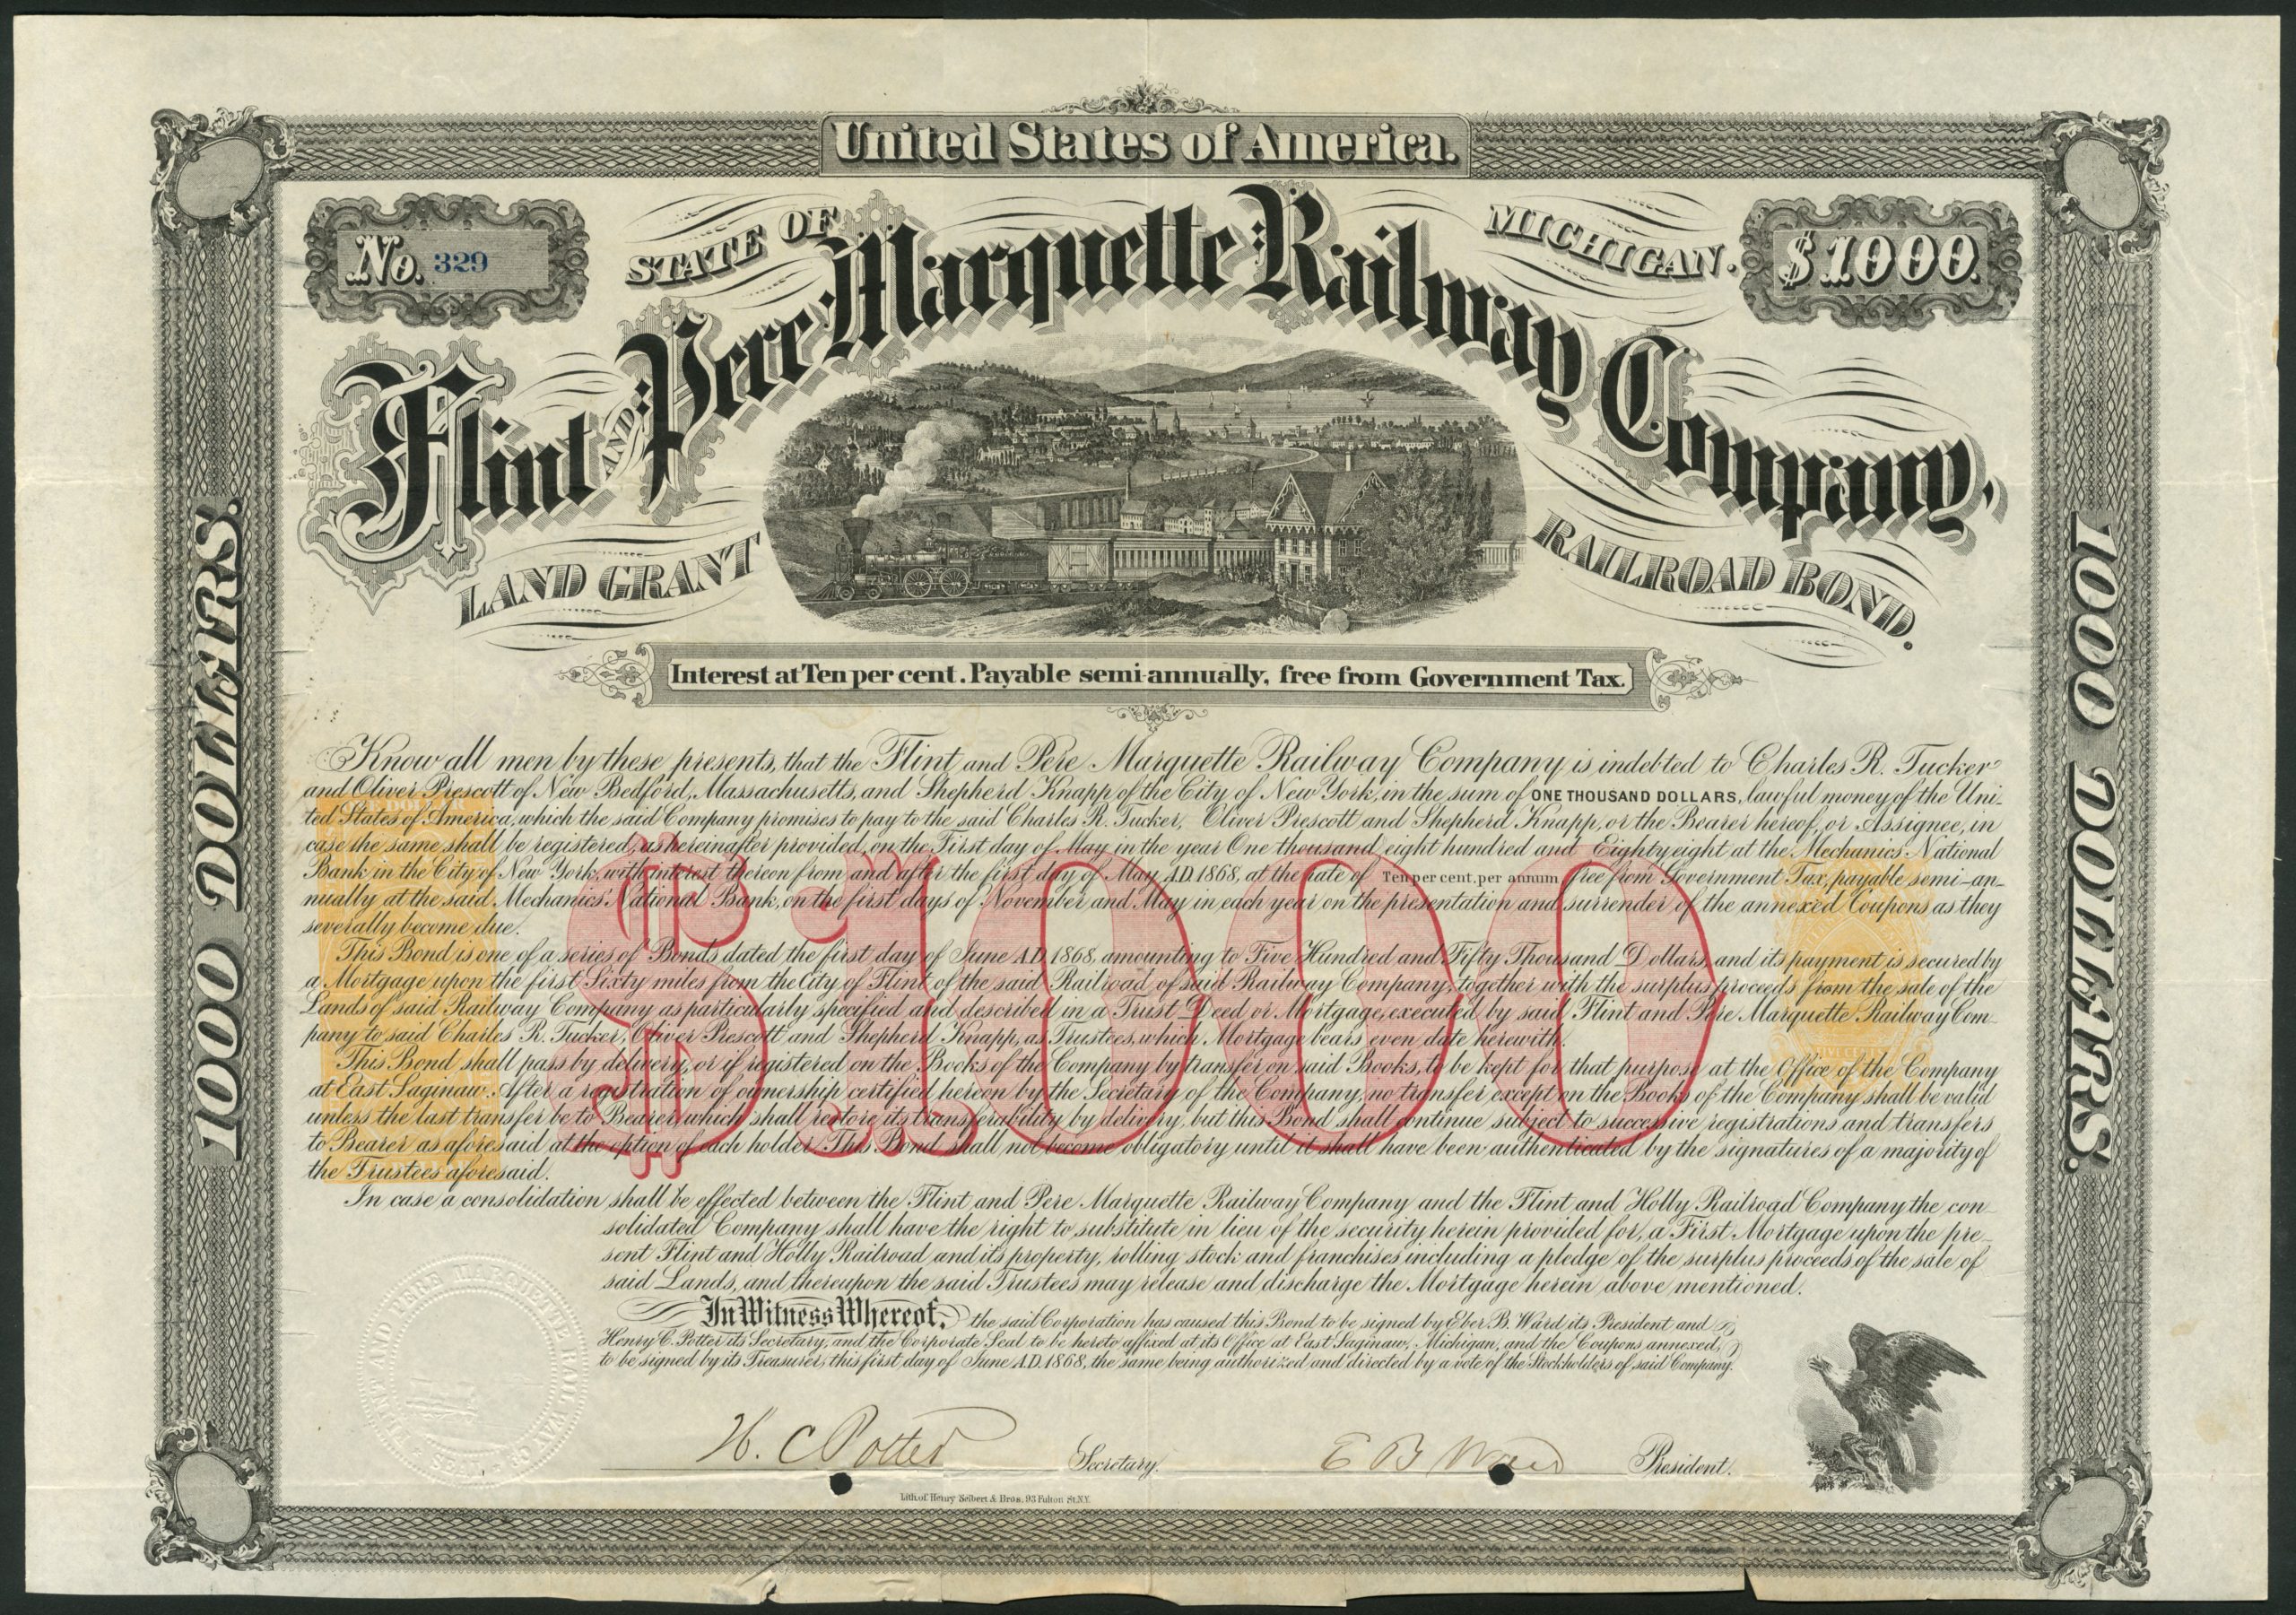 United States of America.
No. 329
STATE OF
MICHIGAN.
$1000.
Flint AND Pere Marquette Railway Company,
LAND GRANT
RAILROAD BOND.
1000 DOLLERS.
1000 DOLLERS.
Interest at Ten per cent. Payable semi-annually, free from Government Tax.
Know all men by these presents, that the Flint and Pere Marquette Railway Company is indebted to Charles R. Tucker
and Oliver Prescott of New Bedford, Massachusetts, and Shepherd Knapp of the City of New York, in the sum of ONE THOUSAND DOLLARS, lawful money of the Uni-
ted States of America, which the said Company promises to pay to the said Charles R. Tucker, Oliver Prescott and Shepherd Knapp, or the Bearer hereof, or Assignee, in
case the same shall be registered, as hereinafter provided, on the First day of May in the year One thousand eight hundred and Eighty eight at the Mechanics National
Bank in the City of New York, with interest thereon from and after the first day of May A.D. 1868, at the rate of Ten per cent. per annum free from Government Tax, payable semi-an-
nually at the said Mechanics' National Bank, on the first days of November and May in each year on the presentation and surrender of the annexed Coupons as they
severally become due.
This Bond is one of a series of Bonds dated the first day of June A.D. 1868, amounting to Five Hundred and Fifty Thousand Dollars, and its payment is secured by
a Mortgage upon the first Sixty miles from the City of Flint of the said Railroad of said Railway Company, together with the surplus proceeds from the sale of the
Lands of said Railway Company as particularly specified and described in a Trust Deed or Mortgage, executed by said Flint and Pere Marquette Railway Com-
pany to said Charles R. Tucker, Oliver Prescott and Shepherd Knapp, as Trustees, which Mortgage bears even date herewith.
This Bond shall pass by delivery, or if registered on the Books of the Company by transfer on said Books, to be kept for that purpose at the Office of the Company
at East Saginaw. After a registration of ownership certified hereon by the Secretary of the Company, no transfer except on the Books of the Company shall be valid
unless the last transfer be to Bearer, which shall restore its transferability by delivery, but this Bond shall continue subject to successive registrations and transfers
to Bearer as aforesaid at the option of each holder. This Bond shall not become obligatory until it shall have been authenticated by the signatures of a majority of
the Trustees aforesaid.
$1000
In case a consolidation shall be effected between the Flint and Pere Marquette Railway Company and the Flint and Holly Railroad Company the con-
solidated Company shall have the right to substitute in lieu of the security herein provided for, a First Mortgage upon the pre-
sent Flint and Holly Railroad and its property, rolling stock and franchises including a pledge of the surplus proceeds of the sale of
said Lands, and thereupon the said Trustees may release and discharge the Mortgage herein above mentioned.
In Witness Whereof, the said Corporation has caused this Bond to be signed by Eber. B. Ward its President and
Henry C. Potter its Secretary, and the Corporate Seal to be hereto affixed at its Office at East Saginaw, Michigan, and the Coupons annexed,
to be signed by its Treasurer, this first day of June A.D. 1868, the same being authorized and directed by a vote of the Stockholders of said Company.
H. C Potter Secretary.
E B Ward President.
Lith. of Henry Seibert & Bros. 93 Fulton St. N.Y.